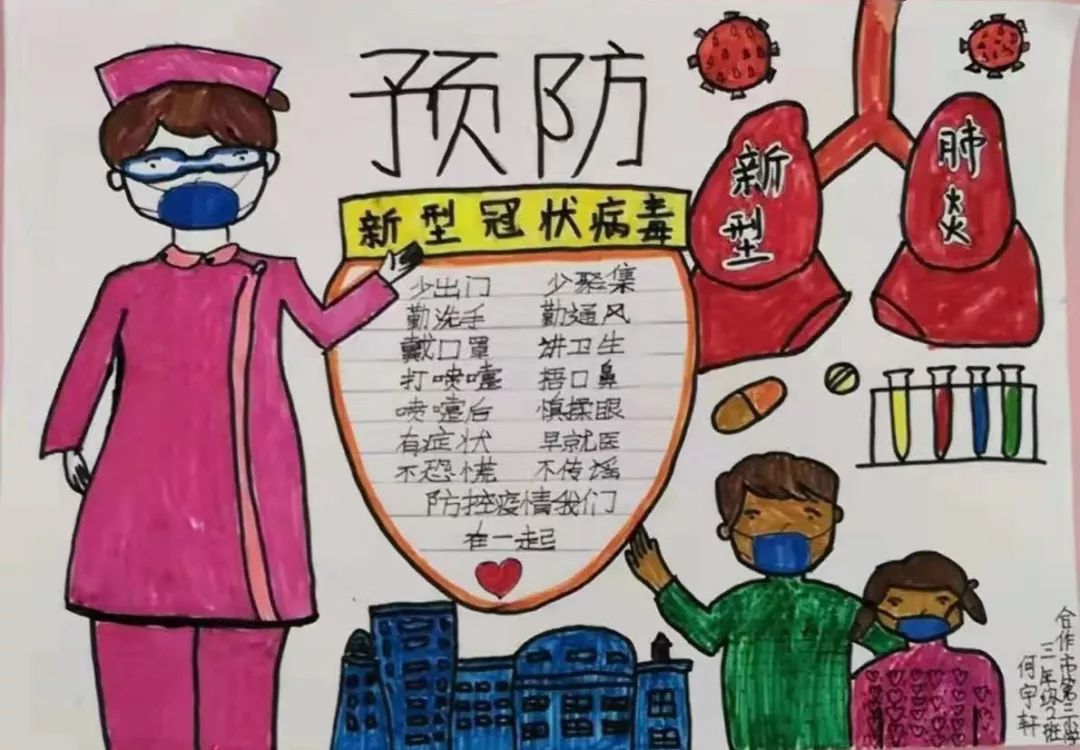 预防
新型冠状病毒
新型
肺炎
少出门 少聚集
勤洗手 勤通风
戴口罩 讲卫生
打喷嚏 捂口鼻
喷嚏后 慎揉眼
有症状 早就医
不恐慌 不传谣
防控疫情我们
在一起
合作市第三小学
三年级2班
何宇轩